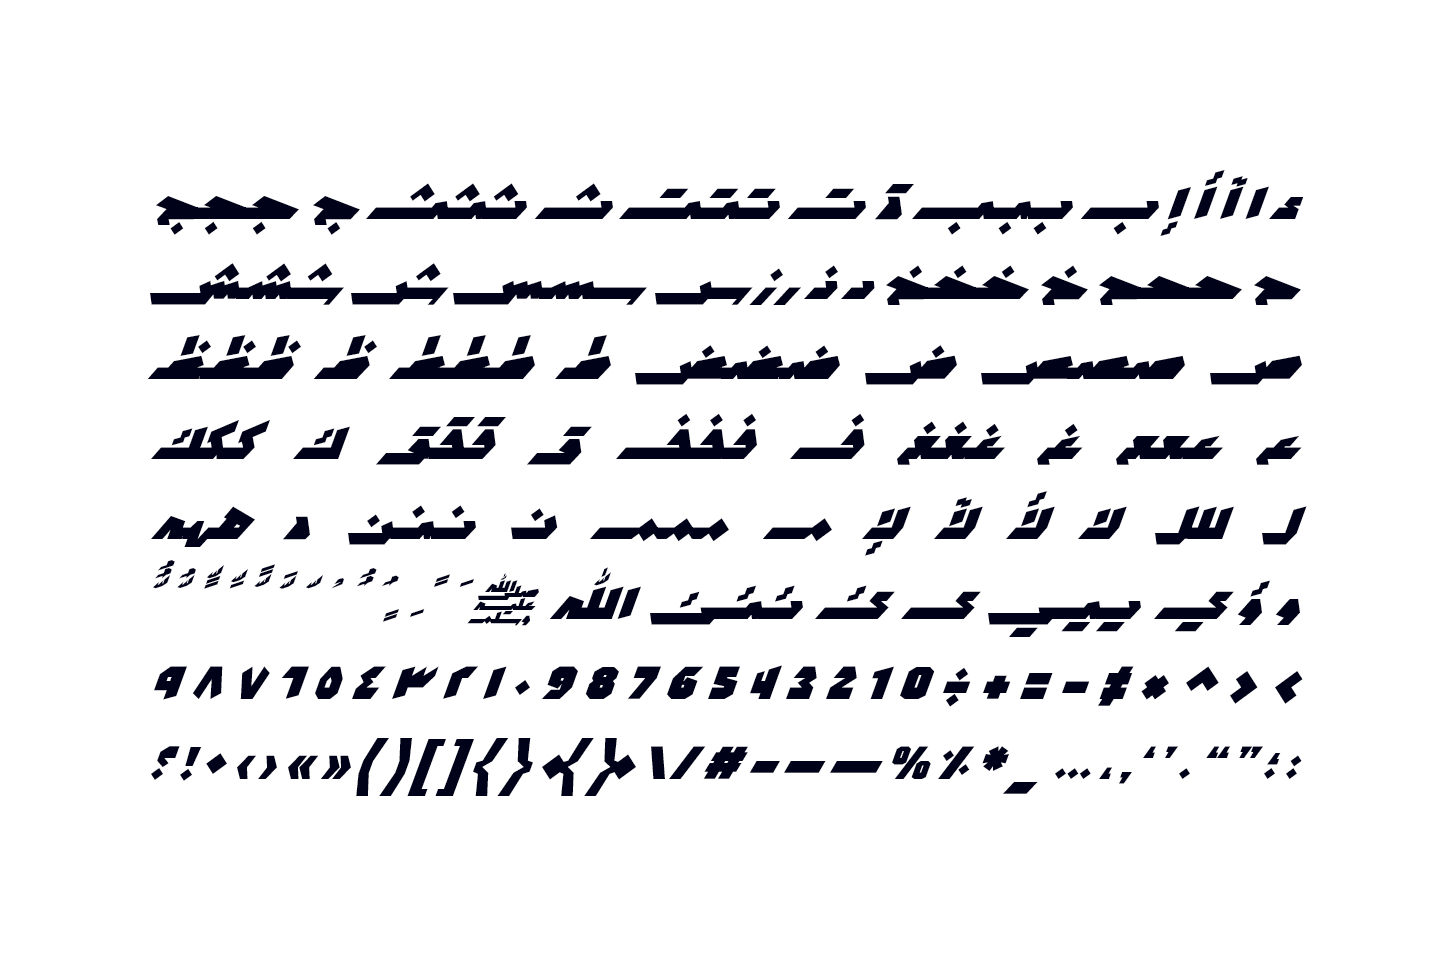 ء ا أ آ إ ب ببب ة ت تتت ث ثثث ج ججج
ح ححح خ خخخ د ذ ر ز س سسس ش ششش
ص صصص ض ضضض ط ططط ظ ظظظ
ع ععع غ غغغ ف ففف ق ققق ك ككك
ل للل لا لأ لآ لإ م ممم ن ننن ه ههه
و ؤ ي ييي ئ ئئئ الله ﷺ
٩ ٨ ٧ ٦ ٥ ٤ ٣ ٢ ١ ٠ 9 8 7 6 5 4 3 2 1 0 ÷ + = - ≠ × ^ > <
؟ ! · ‹ › « » ( ) [ ] { } \ / # - – — % ٪ * _ … ، , ‘ ’ . “ ” ؛ :